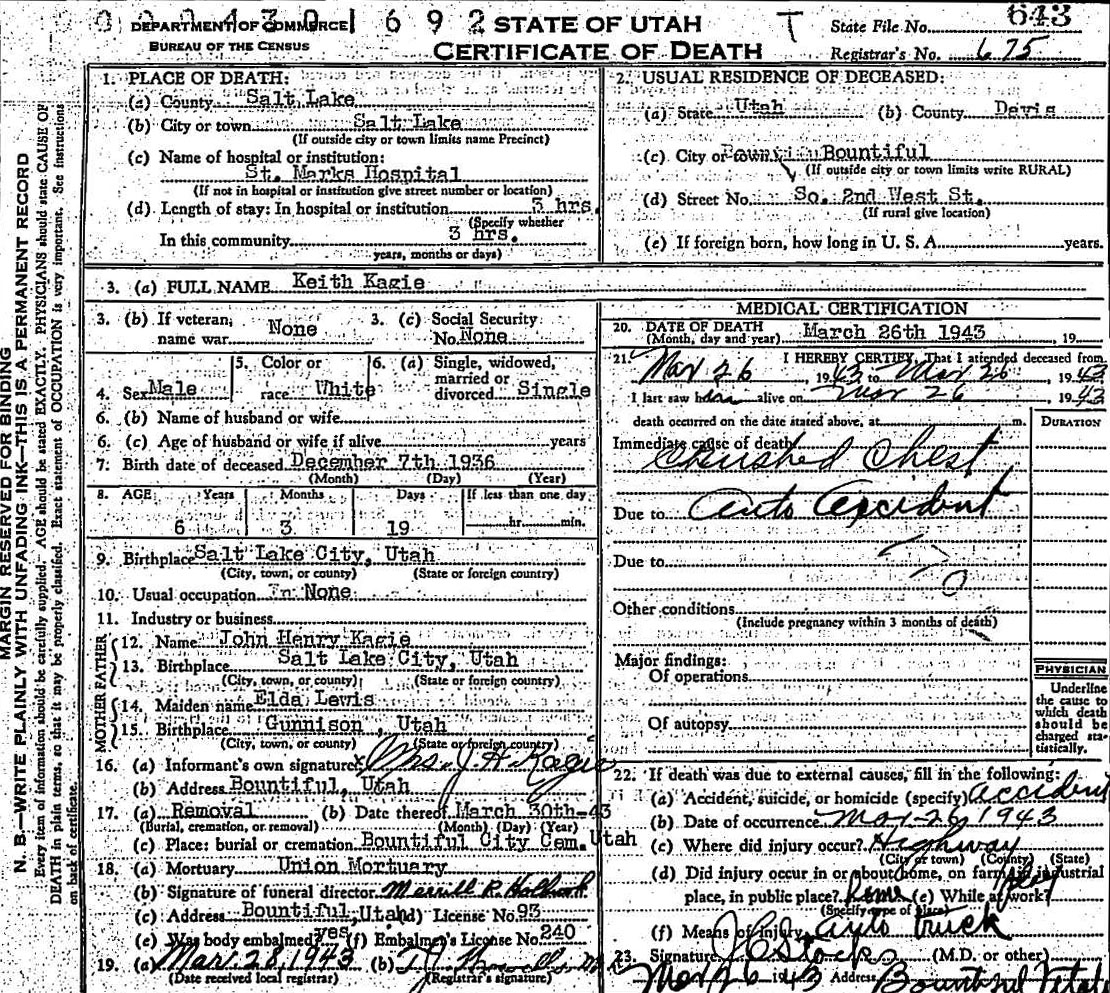 DEPARTMENT OF COMMERCE
BUREAU OF THE CENSUS
0 0 2 4 3 0 1 6 9 2
STATE OF UTAH
CERTIFICATE OF DEATH
T
State File No. 643
Registrar's No. 675
MARGIN RESERVED FOR BINDING
N. B.—WRITE PLAINLY WITH UNFADING INK—THIS IS A PERMANENT RECORD
Every item of information should be carefully supplied. AGE should be stated EXACTLY. PHYSICIANS should state CAUSE OF
DEATH in plain terms, so that it may be properly classified. Exact statement of OCCUPATION is very important. See instructions
on back of certificate.
1. PLACE OF DEATH:
(a) County Salt Lake
(b) City or town Salt Lake
(If outside city or town limits name Precinct)
(c) Name of hospital or institution:
St. Marks Hospital
(If not in hospital or institution give street number or location)
(d) Length of stay: In hospital or institution 3 hrs.
(Specify whether
In this community 3 hrs.
years, months or days)
2. USUAL RESIDENCE OF DECEASED:
(a) State Utah (b) County Davis
(c) City or town Bountiful
(If outside city or town limits write RURAL)
(d) Street No. So. 2nd West St.
(If rural give location)
(e) If foreign born, how long in U. S. A. years.
3. (a) FULL NAME Keith Kagie
3. (b) If veteran, name war None
3. (c) Social Security No. None
4. Sex Male
5. Color or race White
6. (a) Single, widowed, married or divorced Single
6. (b) Name of husband or wife
6. (c) Age of husband or wife if alive years
7. Birth date of deceased December 7th 1936
(Month) (Day) (Year)
8. AGE Years Months Days If less than one day
6 3 19 hr. min.
9. Birthplace Salt Lake City, Utah
(City, town, or county) (State or foreign country)
10. Usual occupation None
11. Industry or business
FATHER
12. Name John Henry Kagie
13. Birthplace Salt Lake City, Utah
(City, town, or county) (State or foreign country)
MOTHER
14. Maiden name Elda Lewis
15. Birthplace Gunnison, Utah
(City, town, or county) (State or foreign country)
16. (a) Informant's own signature Mrs. J H Kagie
(b) Address Bountiful, Utah
17. (a) Removal (b) Date thereof March 30th-43
(Burial, cremation, or removal) (Month) (Day) (Year)
(c) Place: burial or cremation Bountiful City Cem. Utah
18. (a) Mortuary Union Mortuary
(b) Signature of funeral director Merrill R. Holbrook
(c) Address Bountiful, Utah (d) License No. 93
(e) Was body embalmed? yes (f) Embalmer's License No. 240
19. (a) Mar. 28, 1943 (b)
(Date received local registrar) (Registrar's signature)
MEDICAL CERTIFICATION
20. DATE OF DEATH
(Month, day and year) March 26th 1943, 19
21. I HEREBY CERTIFY, That I attended deceased from
Mar 26, 1943 to Mar 26, 1943
I last saw him alive on Mar 26, 1943
death occurred on the date stated above, at m.
DURATION
Immediate cause of death
Crushed Chest
Due to Auto Accident
Due to
Other conditions
(Include pregnancy within 3 months of death)
Major findings:
Of operations
Of autopsy
PHYSICIAN
Underline
the cause to
which death
should be
charged sta-
tistically.
22. If death was due to external causes, fill in the following:
(a) Accident, suicide, or homicide (specify) Accident
(b) Date of occurrence Mar-26, 1943
(c) Where did injury occur? Highway
(City or town) (County) (State)
(d) Did injury occur in or about home, on farm, in industrial
place, in public place? home (e) While at work?
(Specify type of place)
(f) Means of injury auto truck
23. Signature J C Stocks (M.D. or other)
Mar 26 1943 Address Bountiful Utah